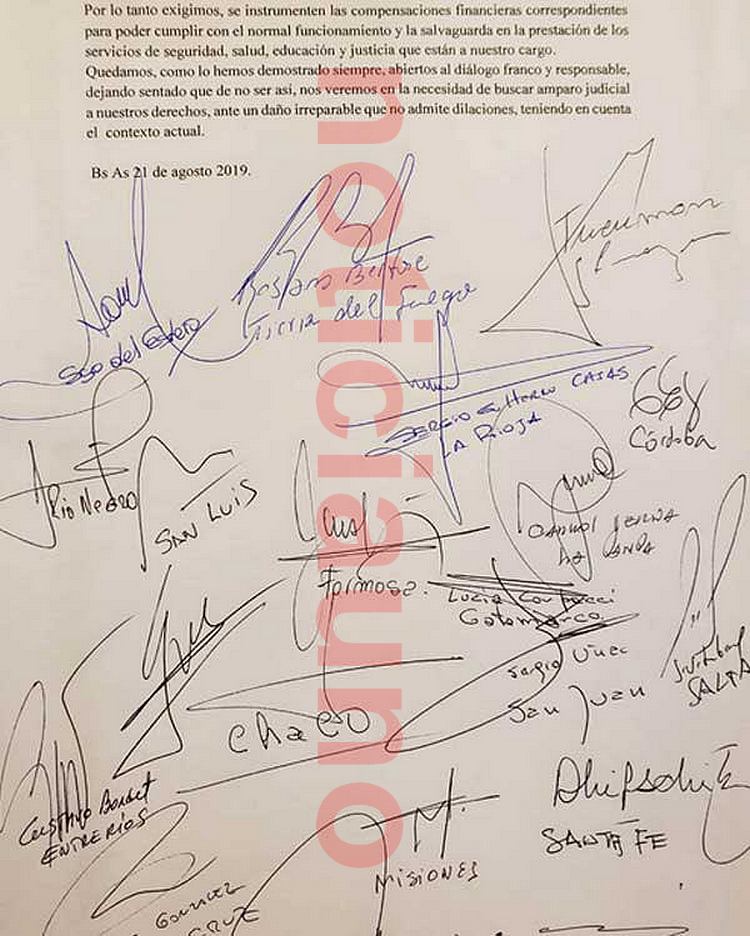 Por lo tanto exigimos, se instrumenten las compensaciones financieras correspondientes
para poder cumplir con el normal funcionamiento y la salvaguarda en la prestación de los
servicios de seguridad, salud, educación y justicia que están a nuestro cargo.
Quedamos, como lo hemos demostrado siempre, abiertos al diálogo franco y responsable,
dejando sentado que de no ser así, nos veremos en la necesidad de buscar amparo judicial
a nuestros derechos, ante un daño irreparable que no admite dilaciones, teniendo en cuenta
el contexto actual.
Bs As 21 de agosto 2019.
Tucuman
Sgo del Estero
Tierra del Fuego
SERGIO G. CASAS
LA RIOJA
Córdoba
Rio Negro
SAN LUIS
Formosa.
Lucia
Catamarca
Sergio Uñac
San Juan
SALTA
Chaco
Gustavo Bordet
ENTRE RIOS
SANTA FE
MISIONES
noticiauno